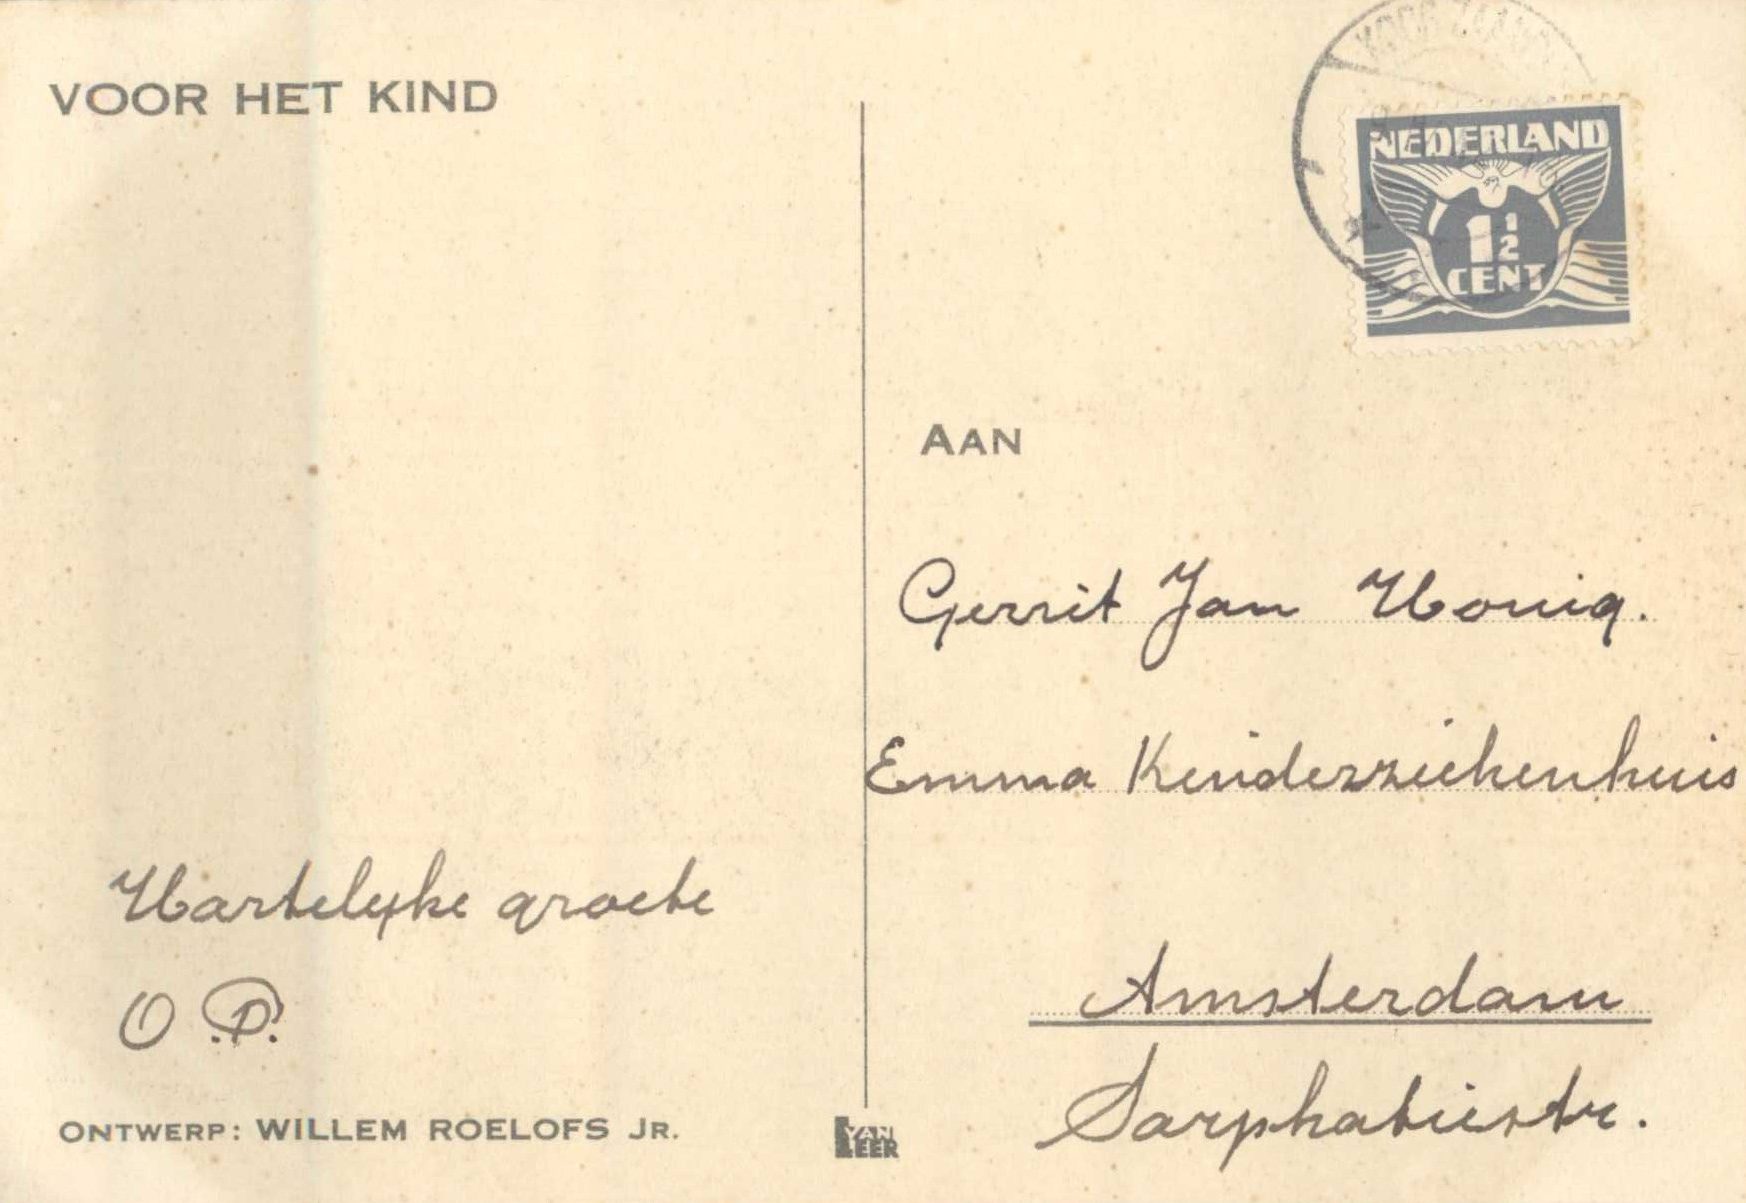 VOOR HET KIND
KOOG ZAAND
NEDERLAND
1 1/2
CENT
AAN
Gerrit Jan Honig.
Emma Kinderziekenhuis
Amsterdam
Sarphatiestr.
Hartelyke groete
O P.
ONTWERP: WILLEM ROELOFS JR.
VAN
LEER